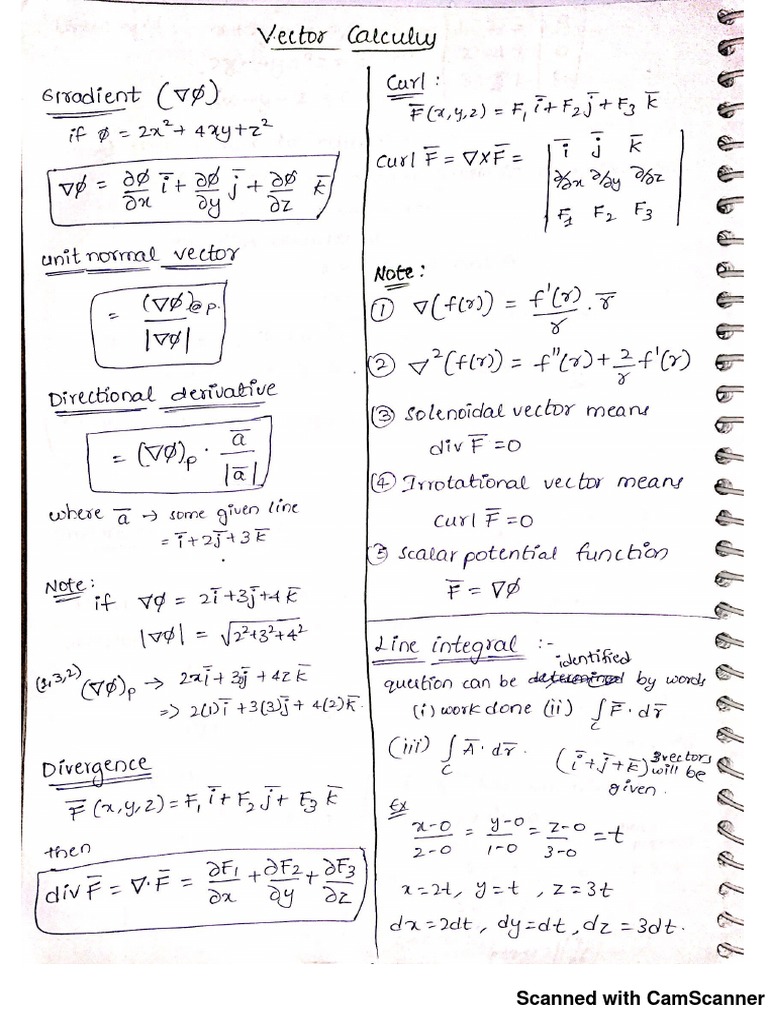 Vector Calculus
Gradient (∇φ)
if φ = 2x² + 4xy + z²
∇φ = ∂φ/∂x i̅ + ∂φ/∂y j̅ + ∂φ/∂z k̅
unit normal vector
= (∇φ)@p. / |∇φ|
Directional derivative
= (∇φ)ₚ · a̅/|a̅|
where a̅ → some given line
= i̅ + 2j̅ + 3k̅
Note:
if ∇φ = 2i̅ + 3j̅ + 4k̅
|∇φ| = √(2²+3²+4²)
(∇φ)ₚ → 2xi̅ + 3yj̅ + 4zk̅
⇒ 2(1)i̅ + 3(3)j̅ + 4(2)k̅
Divergence
F̅(x,y,z) = F₁i̅ + F₂j̅ + F₃k̅
then
div F̅ = ∇·F̅ = ∂F₁/∂x + ∂F₂/∂y + ∂F₃/∂z
Curl :
F̅(x,y,z) = F₁i̅ + F₂j̅ + F₃k̅
curl F̅ = ∇×F̅ = | i̅ j̅ k̅ |
| ∂/∂x ∂/∂y ∂/∂z |
| F₁ F₂ F₃ |
Note:
① ∇(f(r)) = f'(r)/r . r̅
② ∇²(f(r)) = f''(r) + 2/r f'(r)
③ Solenoidal vector means
div F̅ = 0
④ Irrotational vector means
curl F̅ = 0
⑤ Scalar potential function
F̅ = ∇φ
Line integral :-
identified
question can be determined by words
(i) work done (ii) ∫_C F̅ · dr̅
(iii) ∫_C A̅ · dr̅. (i̅ + j̅ + k̅) 3 vectors
will be
given.
Ex
x-0/2-0 = y-0/1-0 = z-0/3-0 = t
x = 2t, y = t, z = 3t
dx = 2dt, dy = dt, dz = 3dt.
Scanned with CamScanner